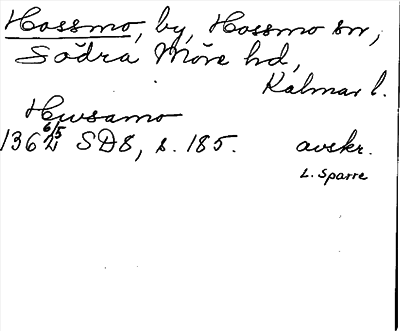 Hossmo, by, Hossmo sn,
Södra Möre hd,
Kalmar l.
Husamo
1362 6/5 SD8, s. 185. avskr.
L. Sparre